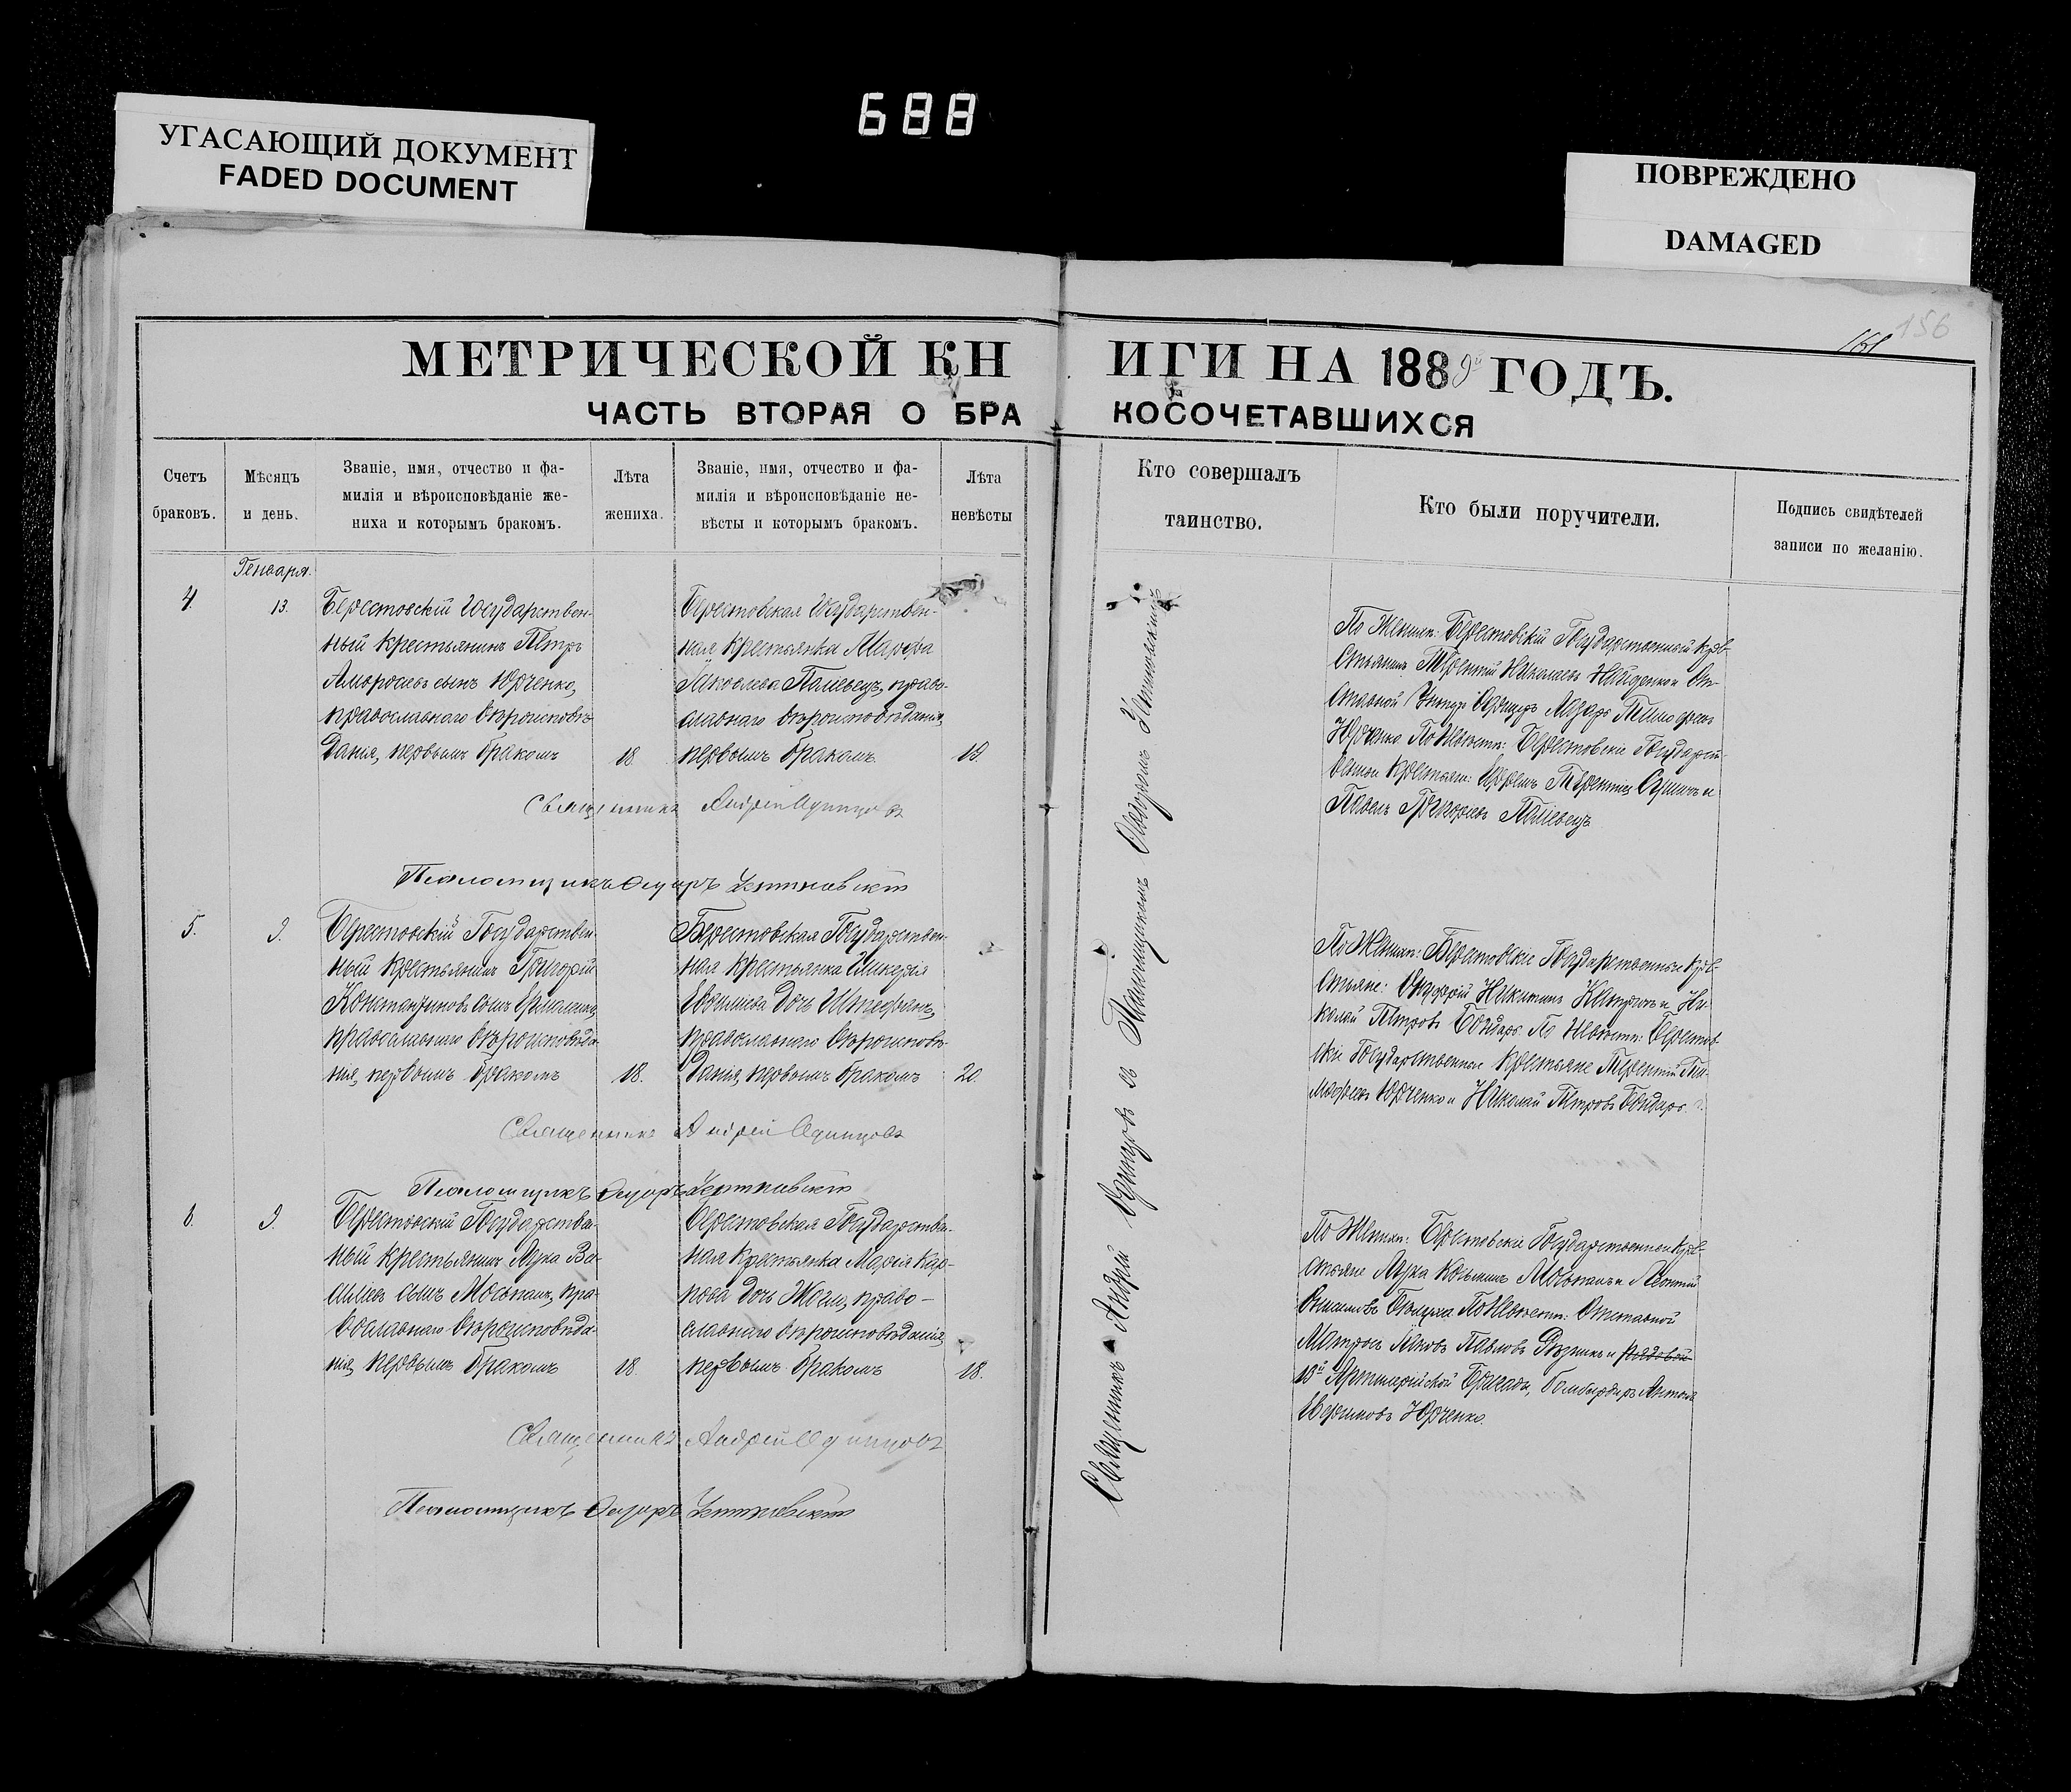 688
УГАСАЮЩИЙ ДОКУМЕНТ
FADED DOCUMENT
ПОВРЕЖДЕНО
DAMAGED
156
161
МЕТРИЧЕСКОЙ КНИГИ НА 1889й ГОДЪ.
ЧАСТЬ ВТОРАЯ О БРАКОСОЧЕТАВШИХСЯ
Счетъ
браковъ.
Мѣсяцъ
и день.
Званіе, имя, отчество и фа-
милія и вѣроисповѣданіе же-
ниха и которымъ бракомъ.
Лѣта
жениха.
Званіе, имя, отчество и фа-
милія и вѣроисповѣданіе не-
вѣсты и которымъ бракомъ.
Лѣта
невѣсты
Кто совершалъ
таинство.
Кто были поручители.
Подпись свидѣтелей
записи по желанію.
Генваря.
4.
13.
Берестовскій Государствен-
ный крестьянинъ Петръ
Амвросіевъ сынъ Юрченко,
православнаго вѣроисповѣ-
данія, первымъ бракомъ
18.
Берестовская Государствен-
ная крестьянка Марфа
Яковлева Паліевецъ, право-
славнаго вѣроисповѣданія,
первымъ бракомъ.
18.
Священникъ Андрей Одинцовъ
Псаломщикъ Ѳедоръ
По женихѣ: Берестовскій Государственный кре-
стьянинъ Терентій Николаевъ Найденко и От-
ставной Унтеръ Офицеръ Лазарь Тимофеевъ
Юрченко. По невѣстѣ: Берестовскіе Государст-
венные крестьяне: Ефремъ Терентіевъ и
Павелъ Григорьевъ Паліевецъ
5.
9.
Берестовскій Государствен-
ный крестьянинъ Григорій
Константиновъ сынъ
православнаго вѣроисповѣда-
нія, первымъ бракомъ
18.
Берестовская Государствен-
ная крестьянка Гликерія
дочь
православнаго вѣроисповѣ-
данія, первымъ бракомъ
20.
Священникъ Андрей Одинцовъ
Псаломщикъ Ѳедоръ
По женихѣ: Берестовскіе Государственные кре-
стьяне: Онуфрій Никитинъ и Ни-
колай Петровъ Бондарь. По невѣстѣ: Берестов-
скіе Государственные крестьяне Терентій Ти-
мофеевъ Юрченко и Николай Петровъ Бондарь.
6.
9.
Берестовскій Государствен-
ный крестьянинъ Лука Ва-
силіевъ сынъ Мосьпанъ, пра-
вославнаго вѣроисповѣда-
нія, первымъ бракомъ
18.
Берестовская Государствен-
ная крестьянка Марія Кар-
пова дочь право-
славнаго вѣроисповѣданія,
первымъ бракомъ
18.
Священникъ Андрей Одинцовъ
Псаломщикъ Ѳедоръ
По женихѣ: Берестовскіе Государственные кре-
стьяне Лука Козьминъ Мосьпанъ и Леонтій
По невѣстѣ: Отставной
Матросъ Яковъ Павловъ Рѣзникъ и рядовой
Артиллерійской Бригады, бомбардиръ Антонъ
Юрченко.
Священникъ Андрей Одинцовъ съ Псаломщикомъ Ѳедоромъ